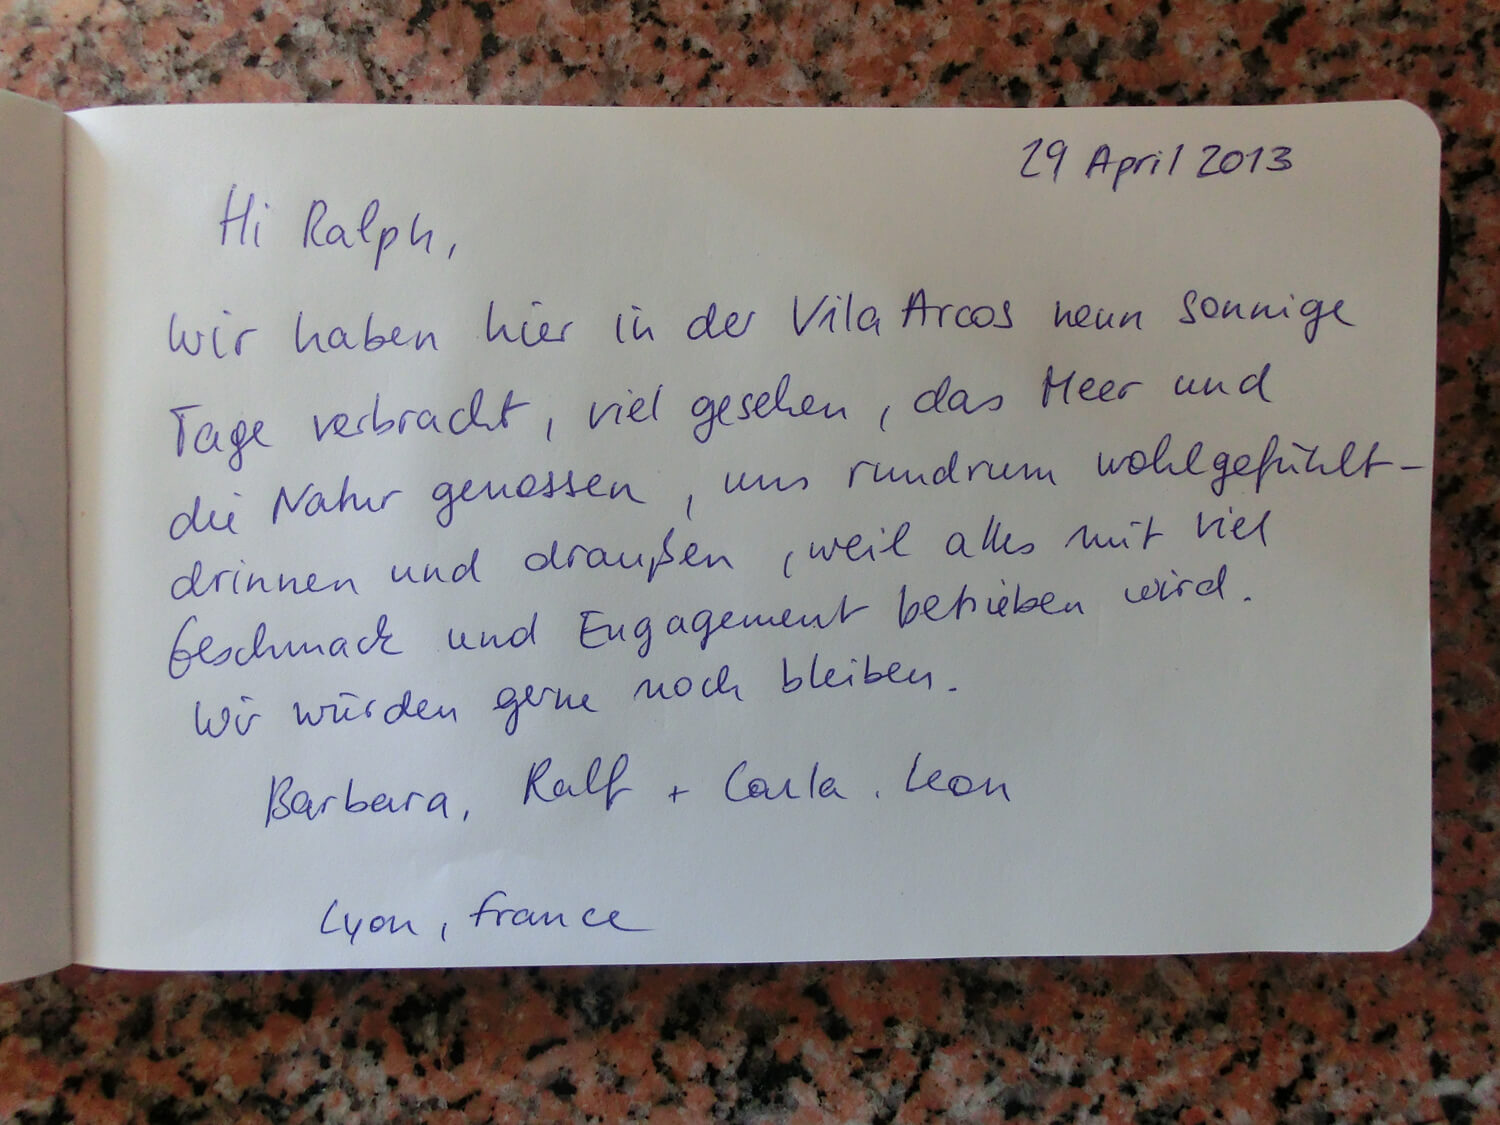 29 April 2013
Hi Ralph,
Wir haben hier in der Vila Arcos neun sonnige
Tage verbracht, viel gesehen, das Meer und
die Natur genossen, uns rundrum wohlgefühlt -
drinnen und draußen, weil alles mit viel
Geschmack und Engagement betrieben wird.
Wir würden gerne noch bleiben.
Barbara, Ralf + Carla, Leon
Lyon, France